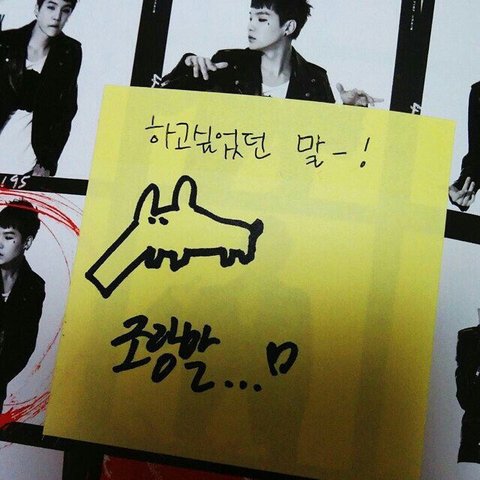 하고싶었던 말-!
조랑말...ㅁ
195